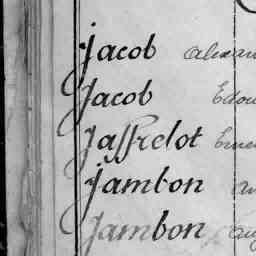 Jacob Alexan
Jacob Edou
Jaffrelot Ernes
Jambon
Jambon Aug